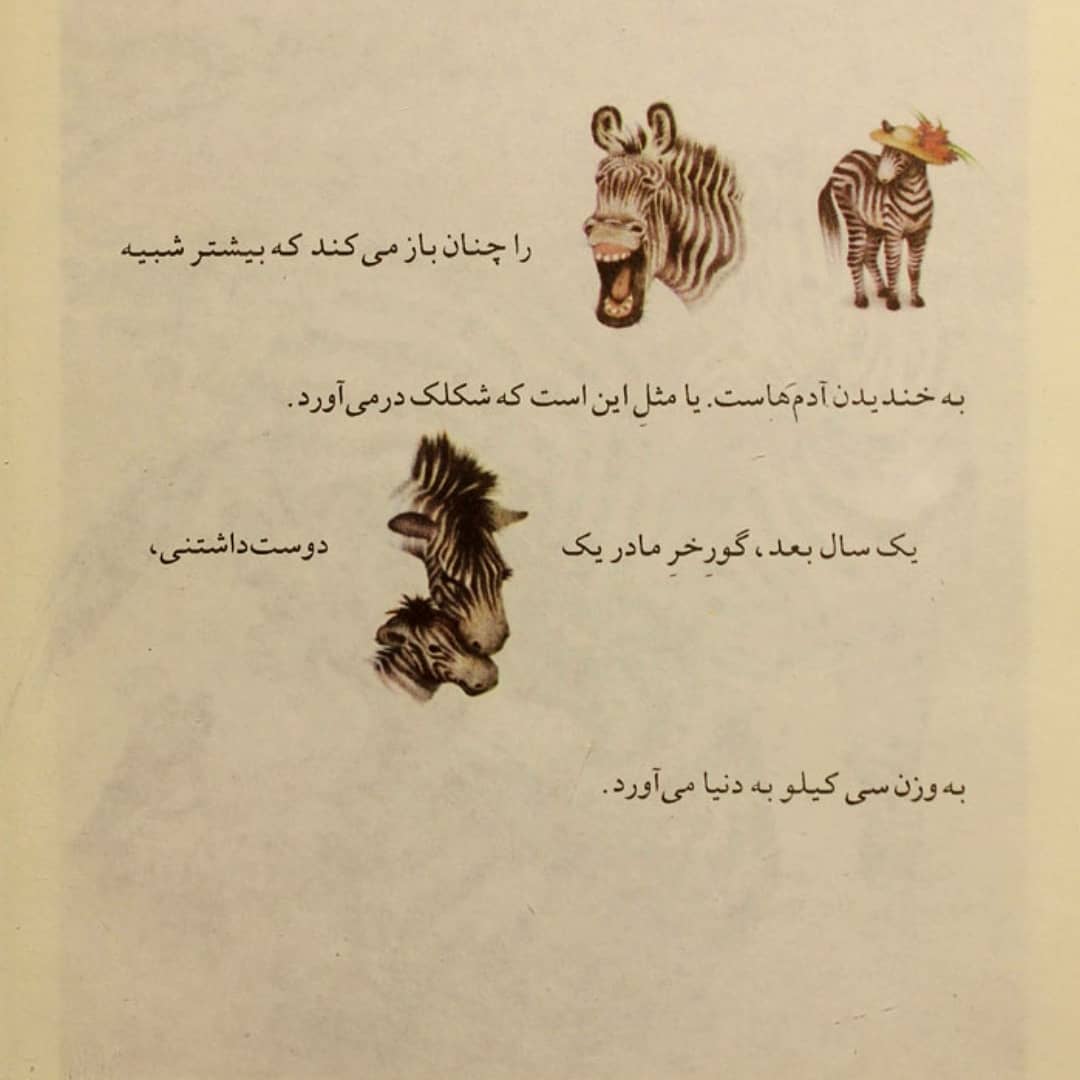 را چنان باز می‌کند که بیشتر شبیه
به خندیدن آدم‌َهاست. یا مثلِ این است که شکلک درمی‌آورد.
یک سال بعد، گورِخرِ مادر یک دوست‌داشتنی،
به وزن سی کیلو به دنیا می‌آورد.